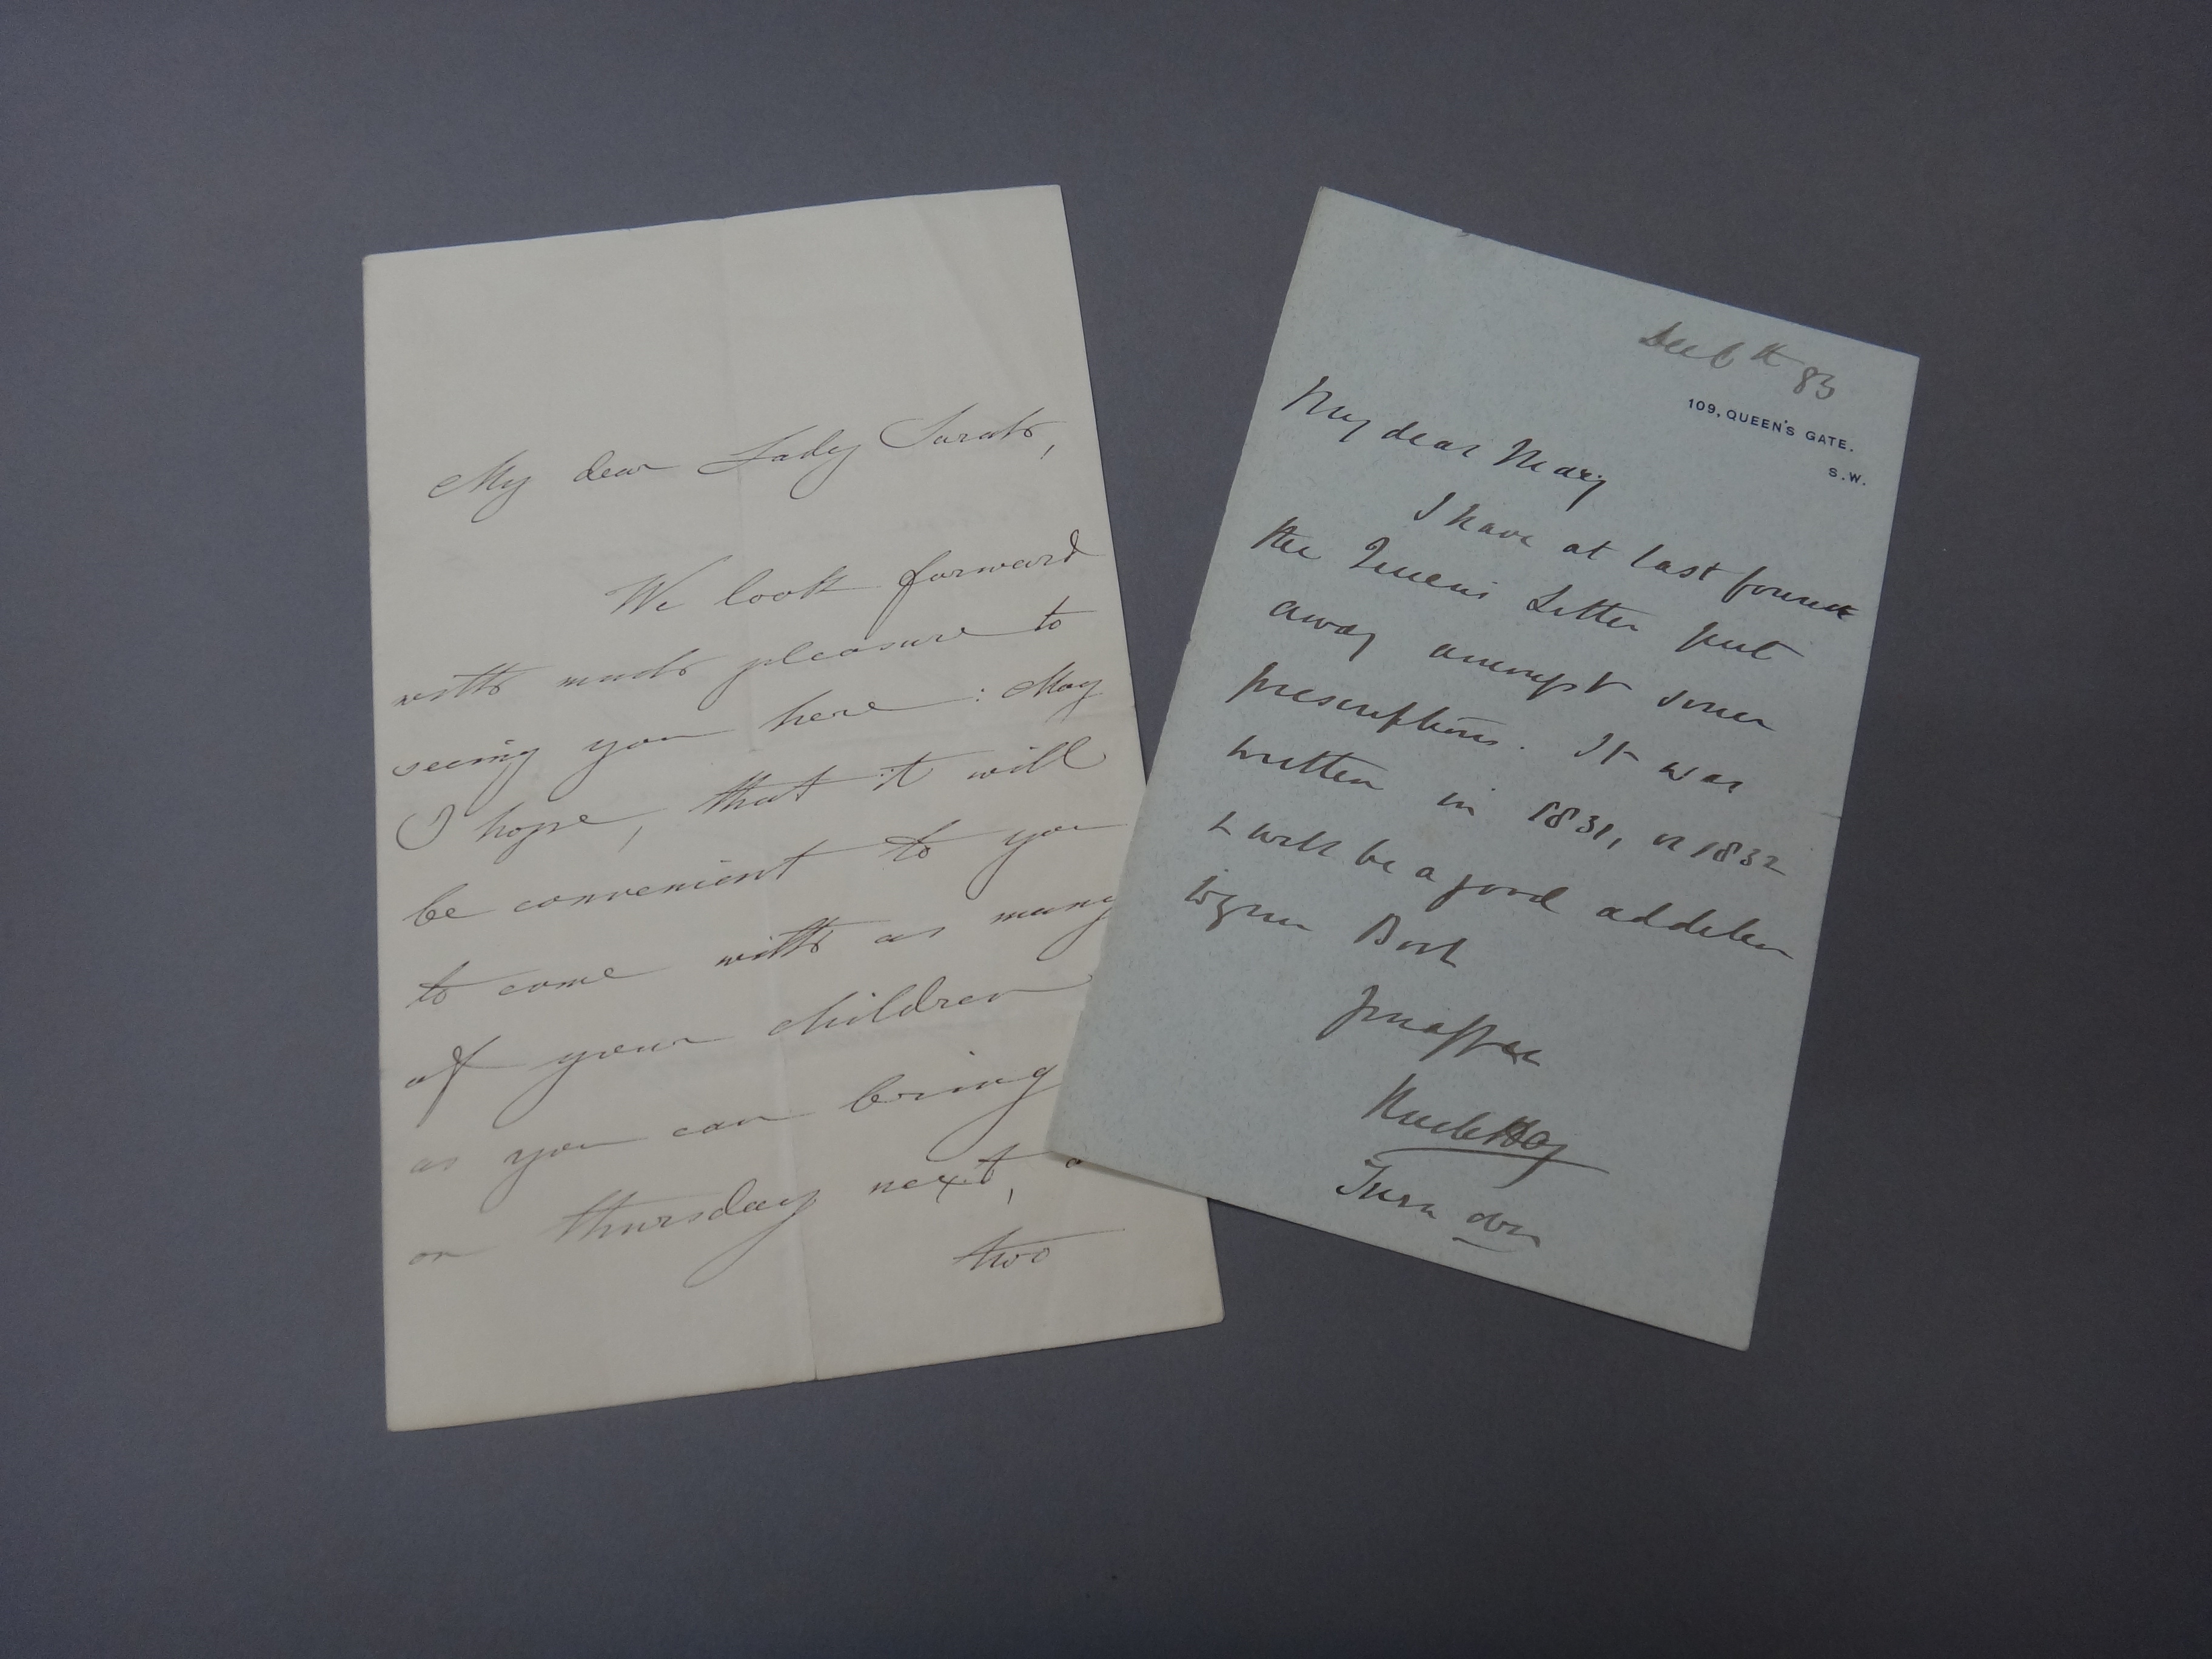 My dear Lady Sarah,
We look forward
with much pleasure to
seeing you here : May
I hope, that it will
be convenient to you
to come with as many
of your children
as you can bring
on thursday next,
two
Dec 6th 83
109, QUEEN'S GATE.
S.W.
My dear Mary
I have at last found
the Queen's Letter put
away amongst some
prescriptions. It was
written in 1831, or 1832
& will be a good addition
to your Book
Your aff
Uncle
Turn over